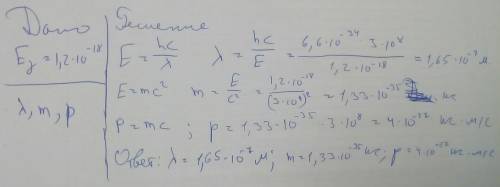 Дано Решение
E = hc/λ λ = hc/E = 6,6·10⁻³⁴ 3·10⁸ / 1,2·10⁻¹⁸ = 1,65·10⁻⁷ м.
= 1,2·10⁻¹⁸
E = mc² m = E/c² = 1,2·10⁻¹⁸ / (3·10⁸)² = 1,33·10⁻³⁵ кг
λ, m, p
p = mc ; p = 1,33·10⁻³⁵ · 3·10⁸ = 4·10 кг·м/с
Ответ: λ = 1,65·10⁻⁷ м; m = 1,33·10⁻³⁵ кг; p = 4·10 кг·м/с